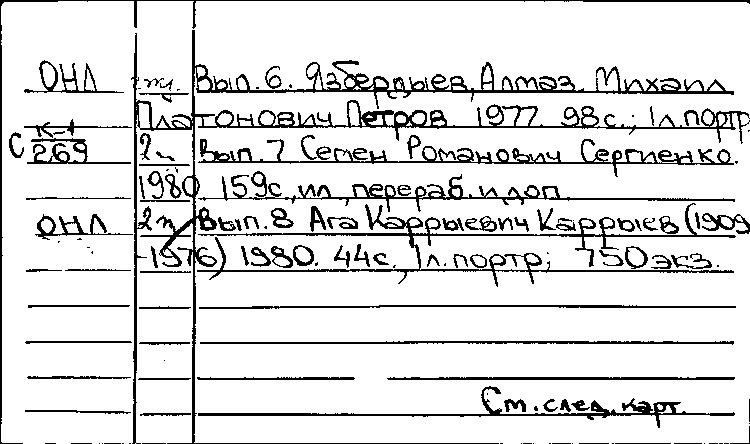 ОНЛ Вып. 6. Язбердыев, Алмаз. Михаил
Платонович Петров. 1977. 98 с.; 1 л. портр
С К-1/269 2 ч Вып. 7 Семен Романович Сергиенко.
1980. 159с., ил., перераб. и доп.
ОНЛ Вып. 8 Ага Каррыевич Каррыев (1909
-1976) 1980. 44 с., 1 л. портр; 750 экз.
См. след. карт.